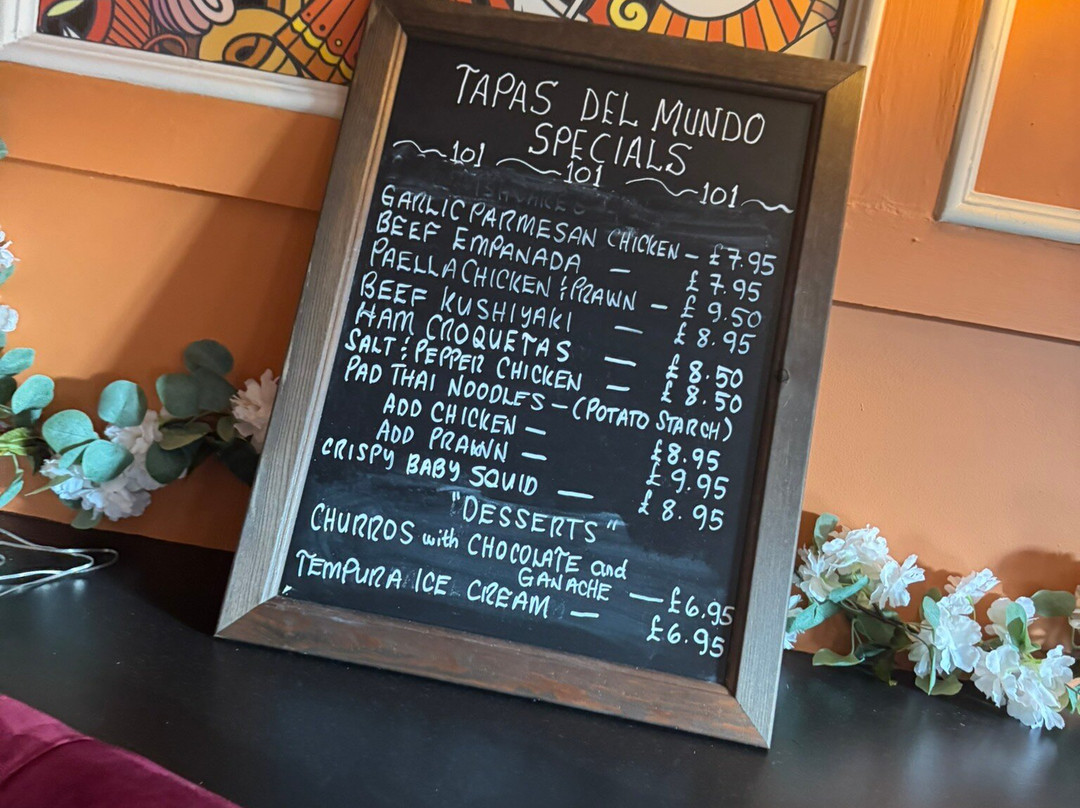 TAPAS DEL MUNDO
SPECIALS
101 101 101
GARLIC PARMESAN CHICKEN - £7.95
BEEF EMPANADA - £7.95
PAELLA CHICKEN & PRAWN - £9.50
BEEF KUSHIYAKI - £8.95
HAM CROQUETAS - £8.50
SALT & PEPPER CHICKEN - £8.50
PAD THAI NOODLES - (POTATO STARCH)
ADD CHICKEN - £8.95
ADD PRAWN - £9.95
CRISPY BABY SQUID - £8.95
"DESSERTS"
CHURROS with CHOCOLATE and
GANACHE - £6.95
TEMPURA ICE CREAM - £6.95